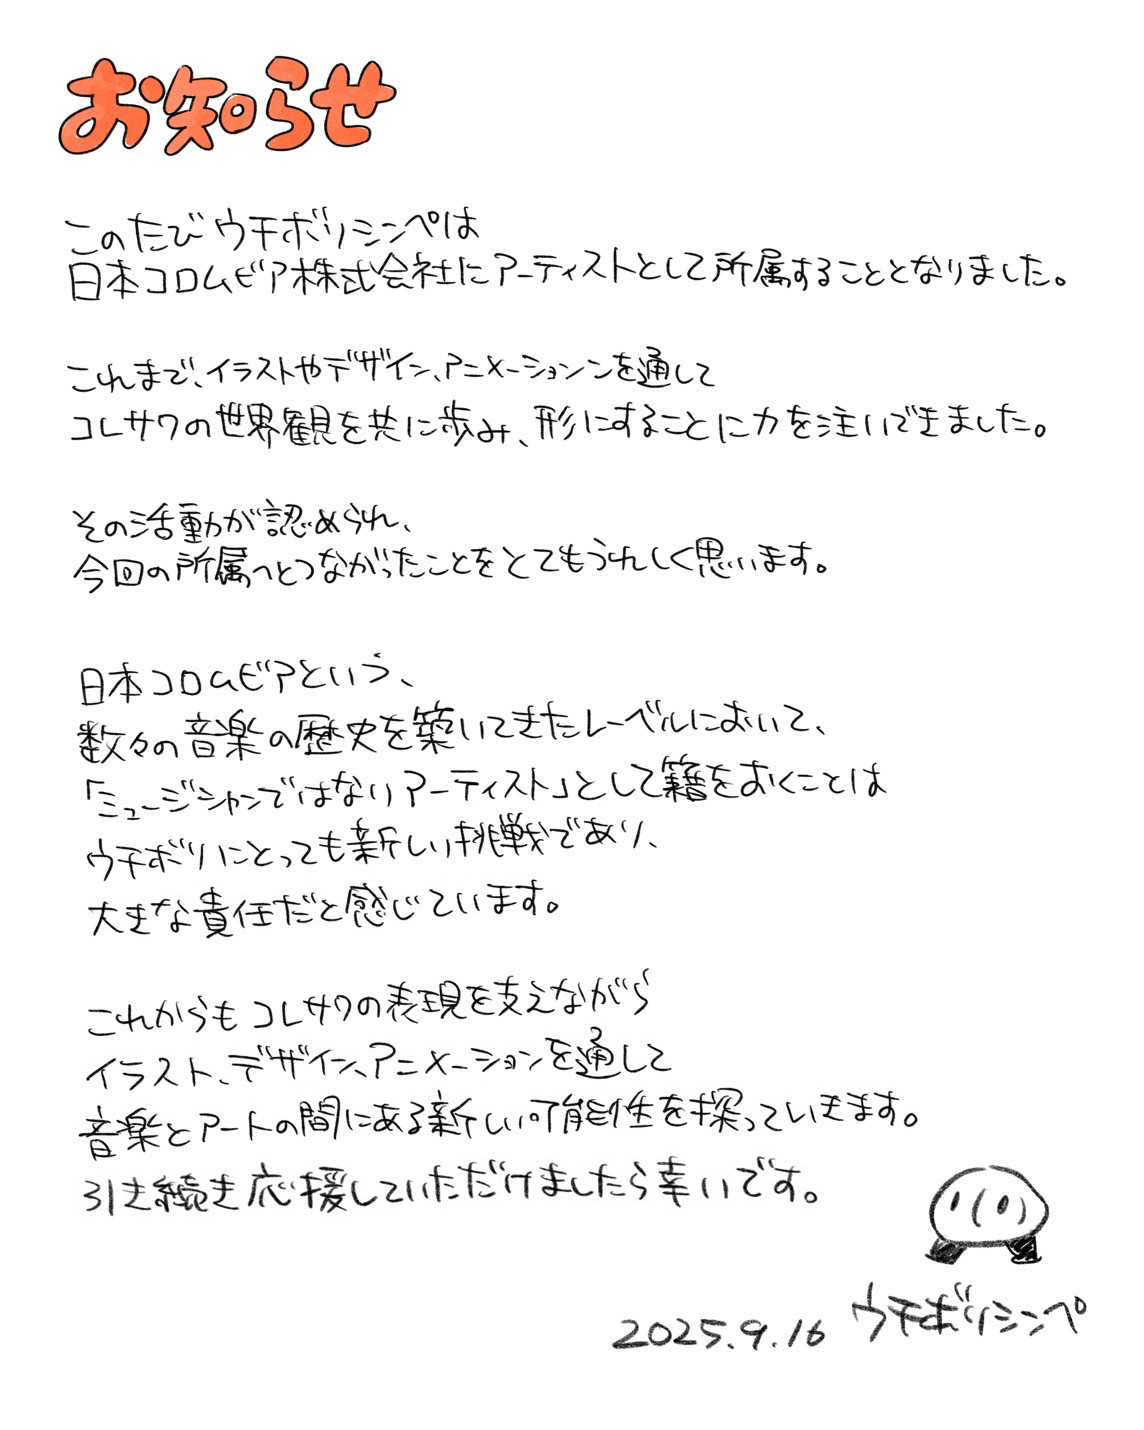 お知らせ
このたびウチボリシンペは
日本コロムビア株式会社にアーティストとして所属することとなりました。
これまで、イラストやデザイン、アニメーションを通して
コレサワの世界観を共に歩み、形にすることに力を注いできました。
その活動が認められ、
今回の所属へとつながったことをとてもうれしく思います。
日本コロムビアという、
数々の音楽の歴史を築いてきたレーベルにおいて、
「ミュージシャンではないアーティスト」として籍をおくことは
ウチボリにとっても新しい挑戦であり、
大きな責任だと感じています。
これからもコレサワの表現を支えながら
イラスト、デザイン、アニメーションを通して
音楽とアートの間にある新しい可能性を探っていきます。
引き続き応援していただけましたら幸いです。
2025.9.16 ウチボリシンペ